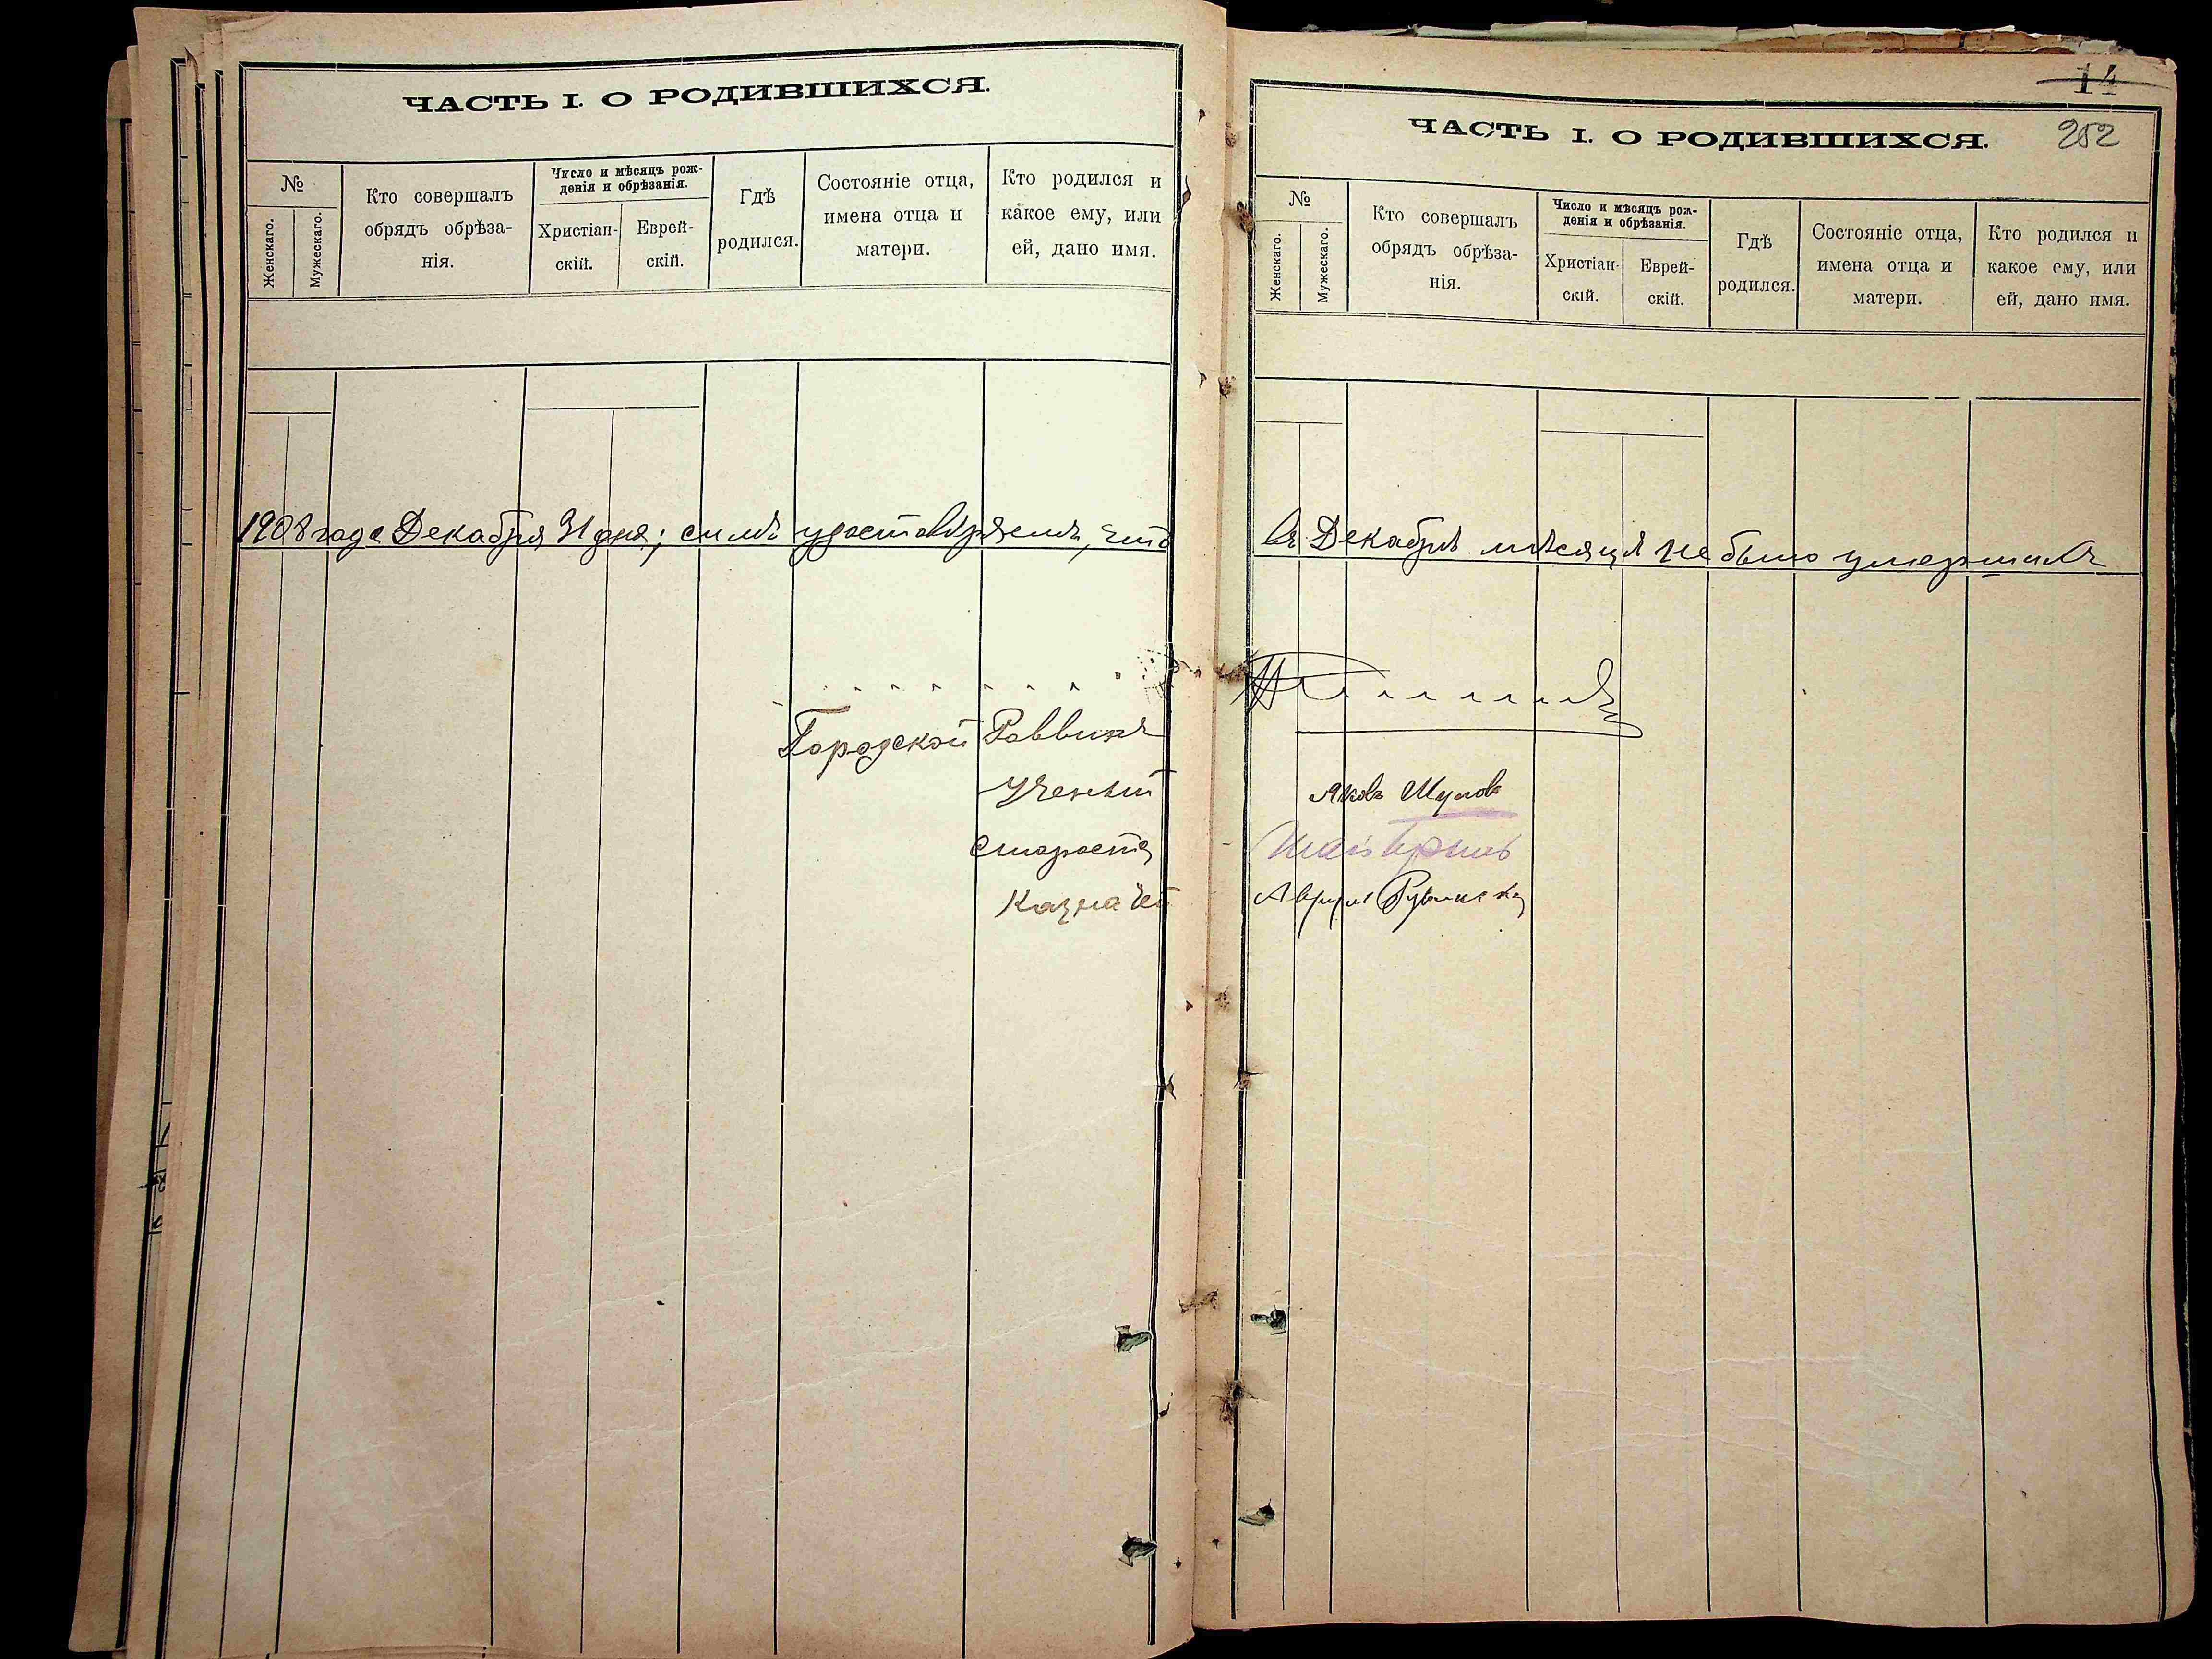 ЧАСТЬ I. О РОДИВШИХСЯ.
№
Женскаго.
Мужескаго.
Кто совершалъ
обрядъ обрѣза-
нія.
Число и мѣсяцъ рож-
денія и обрѣзанія.
Христіан-
скій.
Еврей-
скій.
Гдѣ
родился.
Состояніе отца,
имена отца и
матери.
Кто родился и
какое ему, или
ей, дано имя.
1908 года Декабря 31 дня; симъ удостовѣряемъ, что
Городской Раввинъ
Ученый
Староста
Казначей
14
252
ЧАСТЬ I. О РОДИВШИХСЯ.
№
Женскаго.
Мужескаго.
Кто совершалъ
обрядъ обрѣза-
нія.
Число и мѣсяцъ рож-
денія и обрѣзанія.
Христіан-
скій.
Еврей-
скій.
Гдѣ
родился.
Состояніе отца,
имена отца и
матери.
Кто родился и
какое ему, или
ей, дано имя.
въ Декабрѣ мѣсяцѣ не было умершихъ